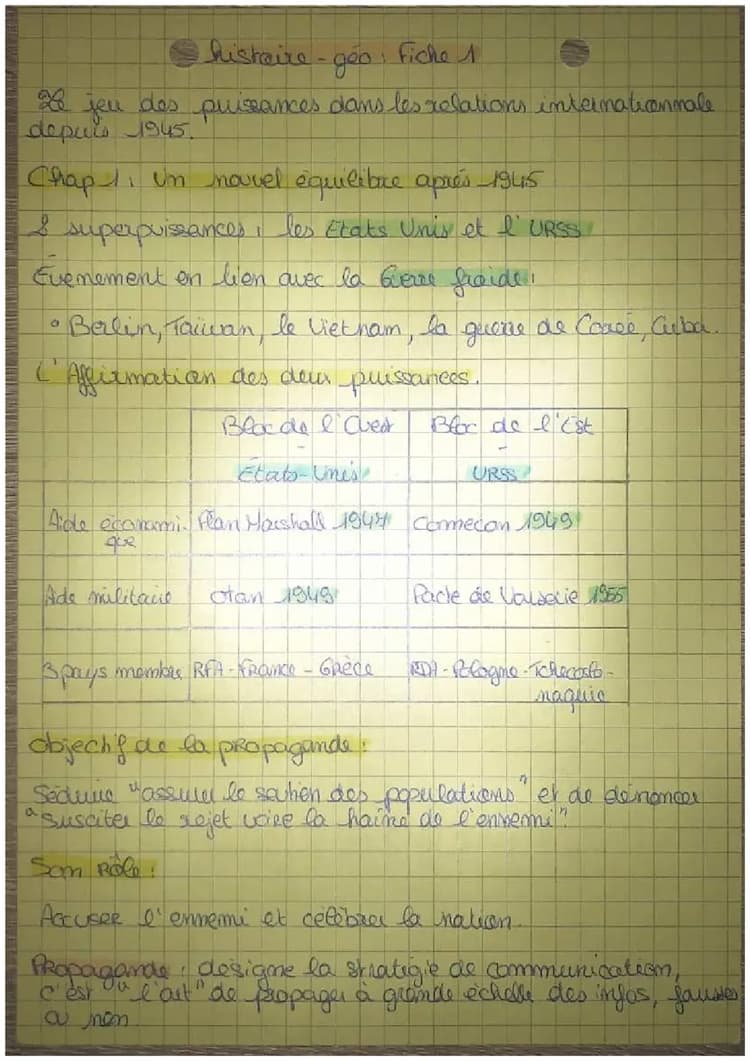 histoire-géo : Fiche 1
Le jeu des puissances dans les relations internationnale
depuis 1945.
Chap 1 : Un nouvel équilibre après 1945
2 superpuissances : les Etats Unis et l'URSS
Évenement en lien avec la Gerre froide :
• Berlin, Taïwan, le Vietnam, la guerre de Corée, Cuba.
L'Affirmation des deux puissances.
Bloc de l'Ouest | Bloc de l'Est
- | -
Etats-Unis | URSS
Aide économi- | Plan Marshall 1947 | Comecon 1949
que
Aide militaire | Otan 1949 | Pacte de Varsovie 1955
3 pays membres | RFA - France - Grèce | RDA - Pologne - Tchecoslo-
vaquie
Objectif de la propagande :
Séduire "assurer le soutien des populations" et de dénoncer
"susciter le rejet voire la haine de l'ennemi".
Son rôle :
Accuser l'ennemi et célébrer la nation.
Propagande : désigne la stratégie de communication,
c'est "l'art" de propager à grande échelle des infos, fausses
ou non